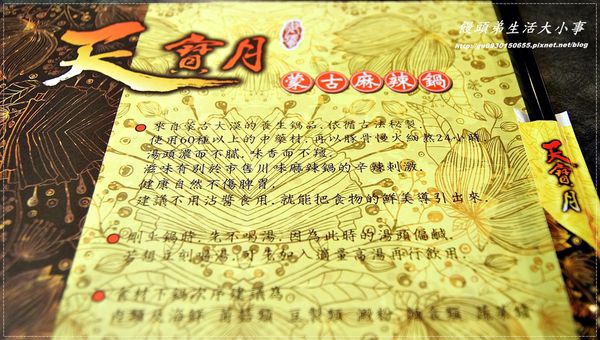 饅頭弟生活大小事
http://gu0930150655.pixnet.net/blog
天寶月
蒙古麻辣鍋
來自蒙古大漠的養生鍋品,依循古法秘製
使用60種以上的中藥材,再以豚骨慢火細熬24小時,
湯頭濃而不膩,味香而不羶.
滋味有別於市售川味麻辣鍋的辛辣刺激.
健康自然不傷脾胃.
建議不用沾醬食用,就能把食物的鮮美導引出來.
剛上鍋時,先不喝湯,因為此時的湯頭偏鹹.
若想立刻喝湯,可先加入適量高湯再行飲用.
食材下鍋次序建議為
肉類及海鮮 菇菌類 豆製類 蔬菜類
天寶月